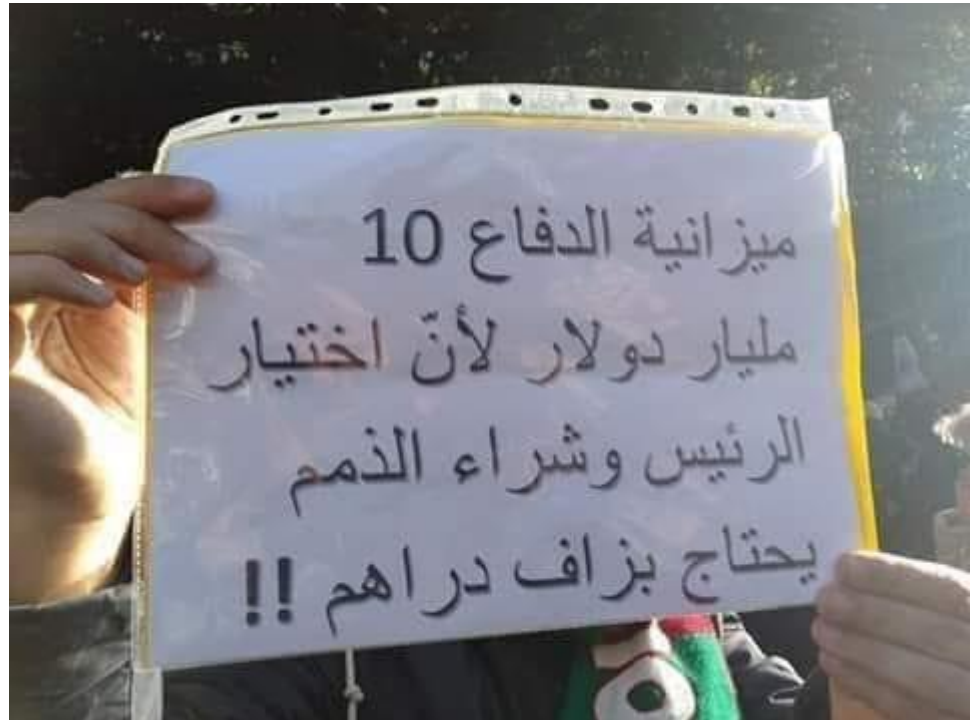 ميزانية الدفاع 10
مليار دولار لأنّ اختيار
الرئيس وشراء الذمم
يحتاج بزاف دراهم !!